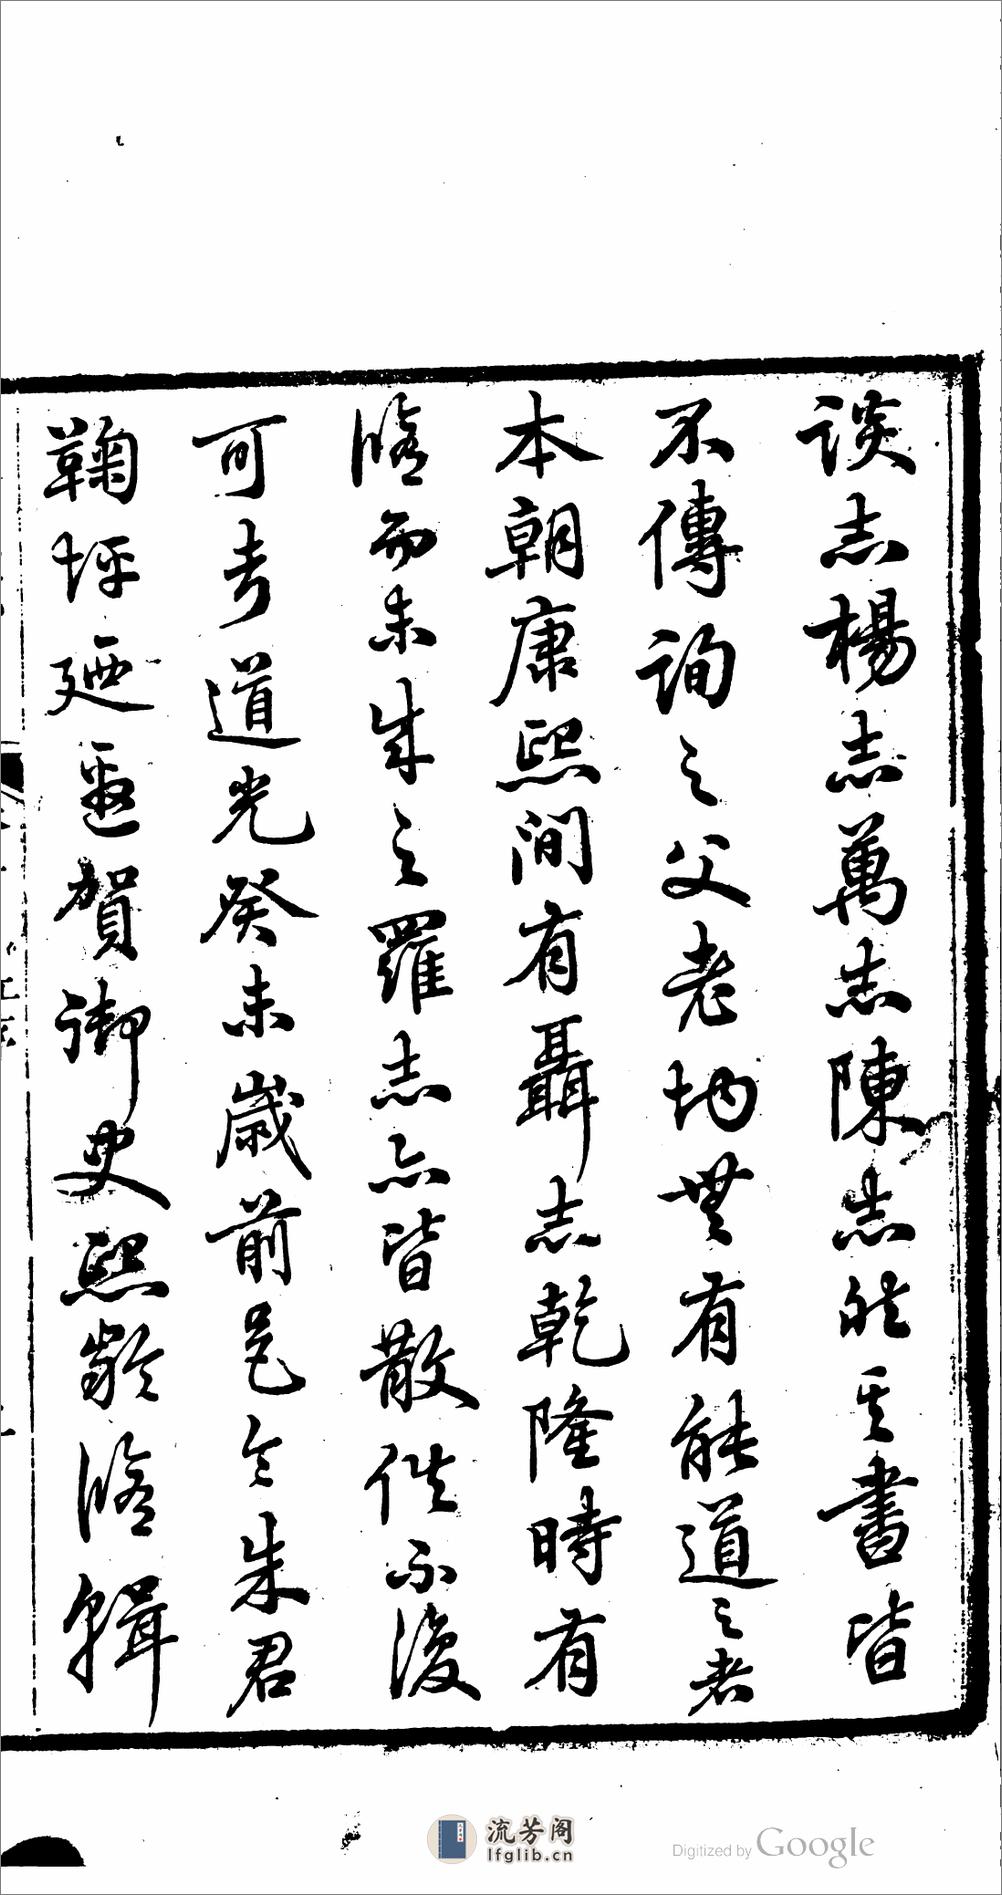 談志楊志萬志陳志然其書皆
不傳詢之父老均無有能道之者
本朝康熙間有聶志乾隆時有
脩而未成之羅志亦皆散佚不復
可考道光癸未歲前邑令朱君
鞠坪廼賀御史熙齡脩輯
流芳阁
lfglib.cn
Digitized by Google